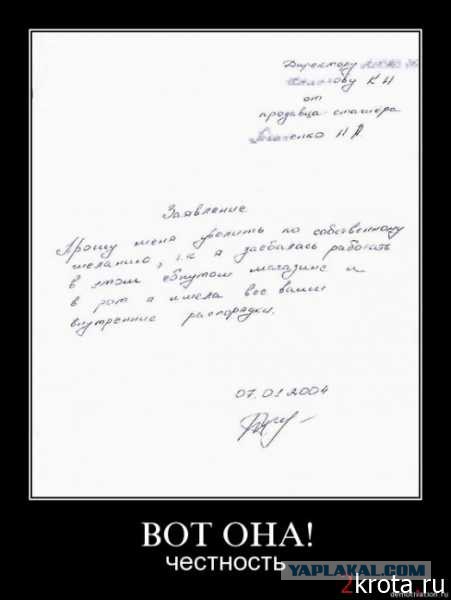 Директору
К Н
от
продавца-стажёра
Н Л
Заявление
Прошу меня уволить по собственному
желанию, т.к я заебалась работать
в этом ебнутом магазине и
в рот я имела все ваши
внутренние распорядки.
07.01.2004
ВОТ ОНА!
честность
YAPLAKAL.COM
2krota.ru
demotivation.ru